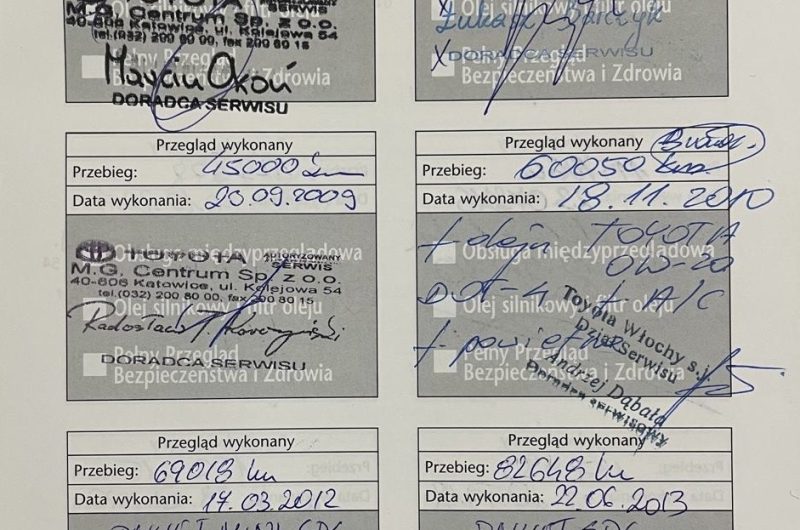 M.G. Centrum Sp. z o.o.
40-606 Katowice, ul. Kolejowa 54
tel.(032) 200 80 00, fax 200 80 15
Pełny Przegląd
Bezpieczeństwa i Zdrowia
Marcin Okoń
DORADCA SERWISU
Łukasz
DORADCA SERWISU
Pełny Przegląd
Bezpieczeństwa i Zdrowia
Przegląd wykonany
Przebieg: 45000 km
Data wykonania: 23.09.2009
Obsługa międzyprzeglądowa
TOYOTA AUTORYZOWANY SERWIS
M.G. Centrum Sp. z o.o.
40-606 Katowice, ul. Kolejowa 54
tel.(032) 200 80 00, fax 200 80 15
Olej silnikowy i filtr oleju
Radosław
DORADCA SERWISU
Pełny Przegląd
Bezpieczeństwa i Zdrowia
Przegląd wykonany
Przebieg: 60050 km
Data wykonania: 18.11.2010
Obsługa międzyprzeglądowa
+ olej TOYOTA
0W-20
Olej silnikowy i filtr oleju
DOT-4 + A/C
Pełny Przegląd
Bezpieczeństwa i Zdrowia
Toyota Włochy s.j.
Dział Serwisu
Andrzej Dąbała
Doradca serwisowy
Przegląd wykonany
Przebieg: 69018 km
Data wykonania: 14.03.2012
Przegląd wykonany
Przebieg: 82648 km
Data wykonania: 22.06.2013